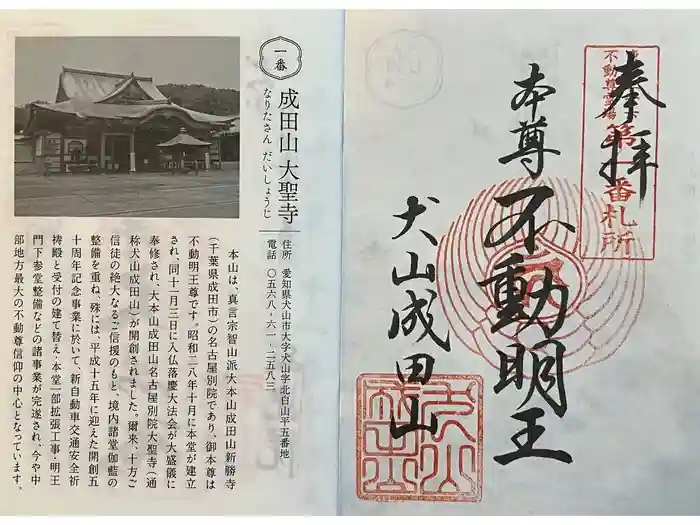 奉拝
第一番札所
本尊 不動明王
犬山成田山
一番
成田山 大聖寺
なりたさん だいしょうじ
住所 愛知県犬山市大字犬山字北白山平五番地
電話 〇五六八-六一-二五八三
本山は、真言宗智山派大本山成田山新勝寺
(千葉県成田市)の名古屋別院であり、御本尊は
不動明王尊です。昭和二八年十月に本堂が建立
され、同十一月三日に入仏落慶大法会が大盛儀に
奉修され、大本山成田山名古屋別院大聖寺(通
称犬山成田山)が開創されました。爾来、十方ご
信徒の絶大なるご信援のもと、境内諸堂伽藍の
整備を重ね、殊には、平成十五年に迎えた開創五
十周年記念事業に於いて、新自動車交通安全祈
祷殿と受付の建て替え・本堂一部拡張工事・明王
門下参堂整備などの諸事業が完遂され、今や中
部地方最大の不動尊信仰の中心となっています。